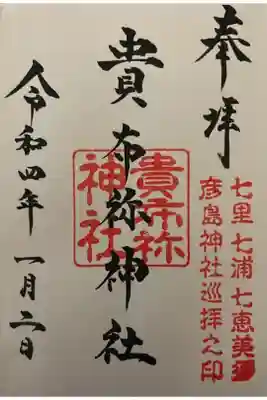 奉拝
七里七浦七恵美
彦島神社巡拝之印
貴布祢神社
貴布祢
神社
令和四年一月二日